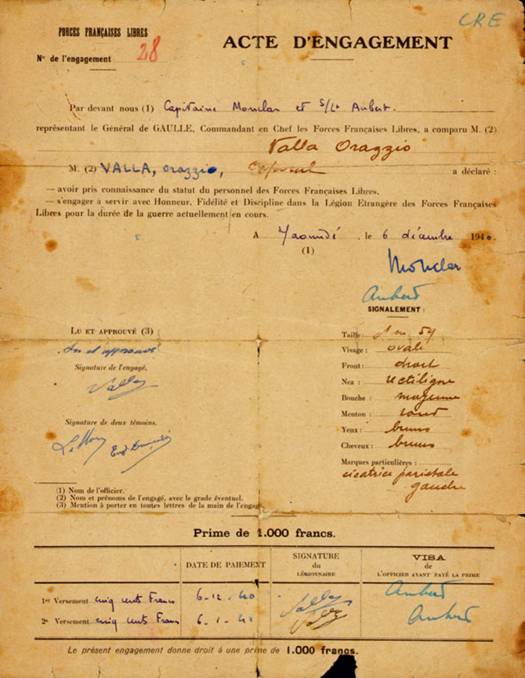 CRE
FORCES FRANÇAISES LIBRES
ACTE D'ENGAGEMENT
N° de l'engagement 28
Par devant nous (1) Capitaine Monclar et S/Lt Aubert.
représentant le Général de GAULLE, Commandant en Chef les Forces Françaises Libres, a comparu M. (2)
Valla Oraggio
M. (2) VALLA, Oraggio, a déclaré :
— avoir pris connaissance du statut du personnel des Forces Françaises Libres.
— s'engager à servir avec Honneur, Fidélité et Discipline dans la Légion Etrangère des Forces Françaises
Libres pour la durée de la guerre actuellement en cours.
A Yaoundé, le 6 décembre 1940.
(1)
Monclar
Aubert
SIGNALEMENT :
LU ET APPROUVÉ (3)
Lu et approuvé
Signature de l'engagé,
Valla
Signature de deux témoins.
Taille : 1 m 59
Visage : ovale
Front : droit
Nez : rectiligne
Bouche : moyenne
Menton : rond
Yeux : bruns
Cheveux : bruns
Marques particulières :
cicatrice pariétale
gauche
(1) Nom de l'officier.
(2) Nom et prénoms de l'engagé, avec le grade éventuel.
(3) Mention à porter en toutes lettres de la main de l'engagé.
Prime de 1.000 francs.
DATE DE PAIEMENT
SIGNATURE
DU
LÉGIONNAIRE
VISA
DE
L'OFFICIER AYANT PAYÉ LA PRIME
1er Versement cinq cents Francs 6-12-40 Valla Aubert
2e Versement cinq cents Francs 6-1-41 Valla Aubert
Le présent engagement donne droit à une prime de 1.000 francs.